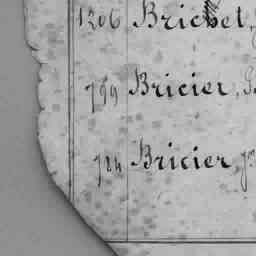 1206 Brichet,
799 Bricier,
724 Bricier